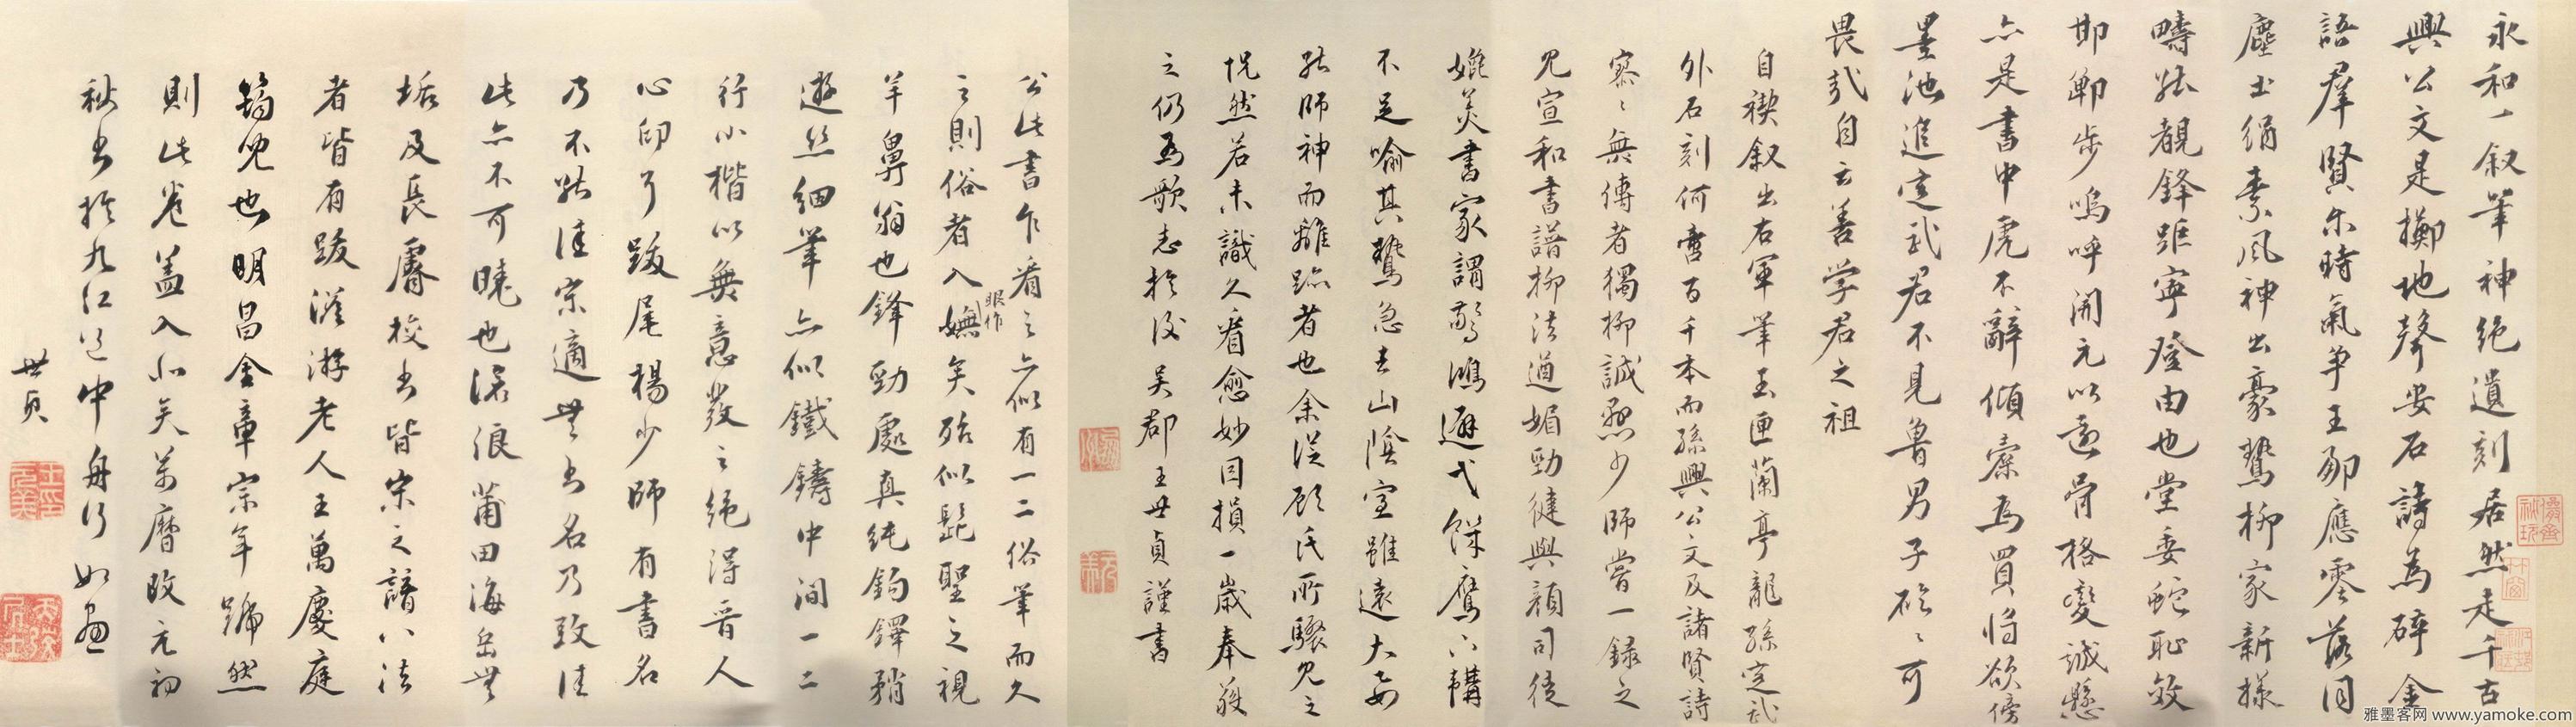 永和一叙筆神絶遺刻居然走千古
興公文是擲地聲安石詩為碎金
語群賢尔時氣苐王勁應零落同
塵土絹素風神出豪鷙柳家新樣
疇能覩鋒距寧登由也堂委蛇恥效
邯鄲步嗚呼開元以還骨格變誠懸
亦是書中虎不辭傾橐為買將欲傍
墨池進定武君不見魯男子硜〻可
畏哉自云善学君之祖
自禊叙出右軍筆玉匣蘭亭龍孫定武
外石刻何啻百千本而孫興公文及諸賢詩
寥〻無傳者獨柳誠懸少師嘗一録之
見宣和書譜柳法遒媚勁健與顔司徒
媲美書家謂驚鴻避弋饑鷹下韝
不足喻其鷙急去山陰室雖遠大要
能師神而離跡者也余從顧氏所驟見之
怳然若未識久看愈妙因損一歲奉獲
之仍為歌志於後吴郡王世貞謹書
公此書乍看之亦似有一二俗筆而久
之則俗者入眼作嫵矣殆似髭聖之視
羊鼻翁也鋒勁處真純鉤鐸稍
遊絲細筆亦似鐵鑄中間一二
行小楷以無意發之絶得晋人
心印了跋尾楊少師有書名
乃不能佳宗適無書名乃致佳
此亦不可曉也滾浪莆田海岳無
垢及長睿校書皆宋之諳八法
者皆有跋溪游老人王萬慶庭
筠兒也明昌金章宗年號然
則此卷盖入北矣萬曆改元初
秋書於九江道中舟行如畫
世貞
雅墨客网 www.yamoke.com